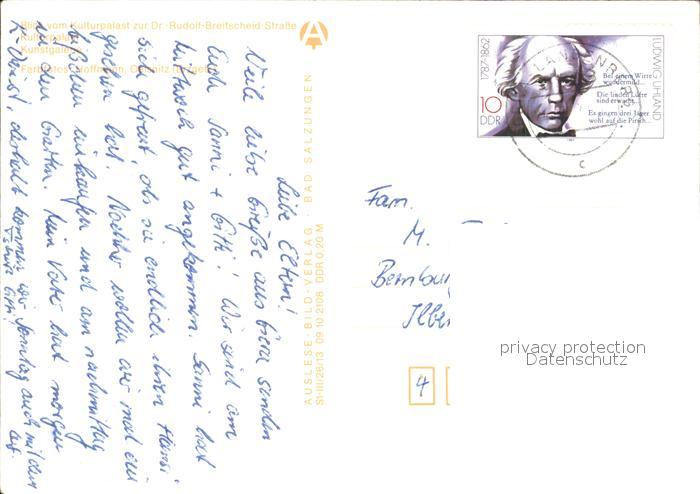 Blick vom Kulturpalast zur Dr.-Rudolf-Breitscheid-Straße
Kulturpalast
Kunstgalerie
Liebe Eltern!
Viele liebe Grüße aus Gera senden
Euch Sanni + Gitti! Wir sind am
gut angekommen. Sanni hat
sich gefreut, als sie endlich ihren Hansi
gesehen hat. Nachher wollen wir mal ein
bißchen einkaufen und am nachmittag
in den Garten. Mein Vater hat morgen
Dienst, deshalb kommen wir Sonntag auch mit dem
Tschüß Gitti!
AUSLESE-BILD-VERLAG · BAD SALZUNGEN
St·III/26/13 09 10 2108 DDR 0,20 M
1787-1862
10
DDR
LUDWIG UHLAND
Bei einem Wirte
wundermild...
Die linden Lüfte
sind erwacht...
Es gingen drei Jäger
wohl auf die Pirsch...
c
Fam.
M.
Bernburg
4
privacy protection
Datenschutz